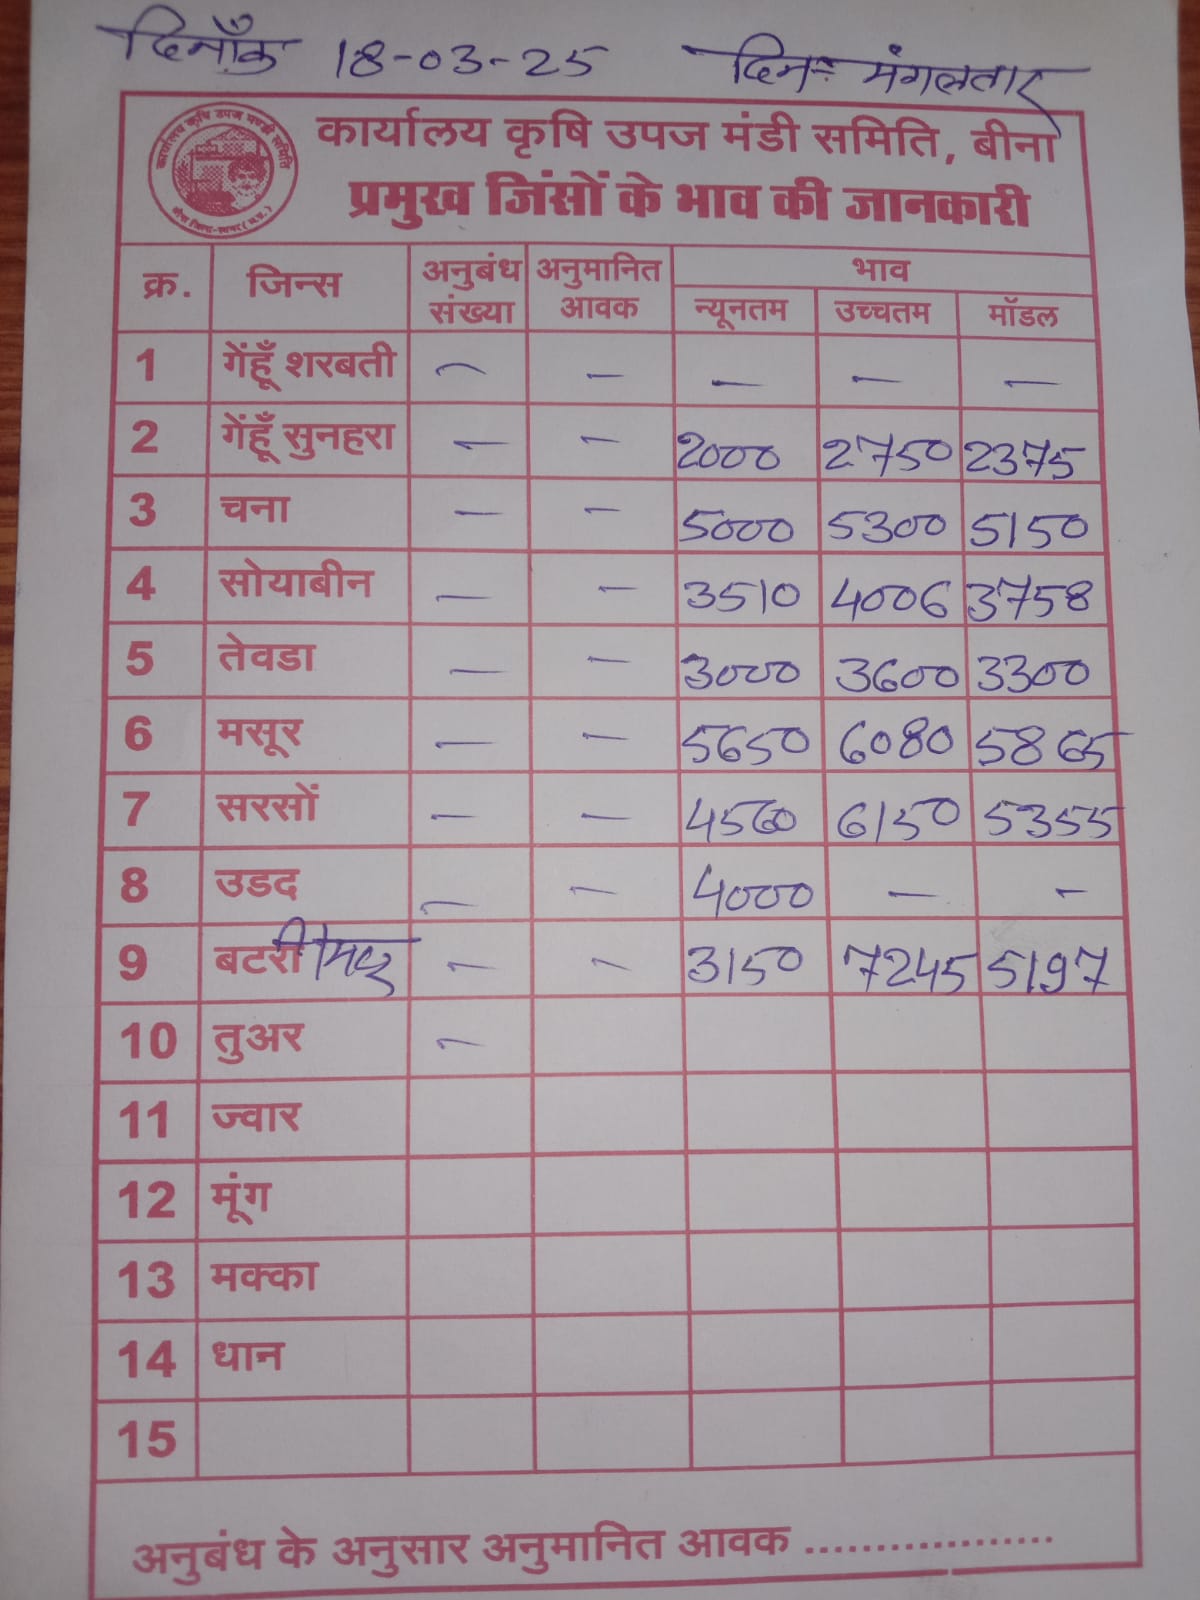 दिनाँक 18-03-25 दिन:- मंगलवार
कार्यालय कृषि उपज मंडी समिति, बीना
प्रमुख जिंसों के भाव की जानकारी
कार्यालय कृषि उपज मण्डी समिति
बीना जिला-सागर (म.प्र.)
क्र. जिन्स अनुबंध संख्या अनुमानित आवक भाव
न्यूनतम उच्चतम मॉडल
1 गेंहूँ शरबती – – – – –
2 गेंहूँ सुनहरा – – 2000 2750 2375
3 चना – – 5000 5300 5150
4 सोयाबीन – – 3510 4006 3758
5 तेवडा – – 3000 3600 3300
6 मसूर – – 5650 6080 5865
7 सरसों – – 4560 6150 5355
8 उडद – – 4000 – –
9 बटरी/मटर – – 3150 7245 5197
10 तुअर –
11 ज्वार
12 मूंग
13 मक्का
14 धान
15
अनुबंध के अनुसार अनुमानित आवक ..................